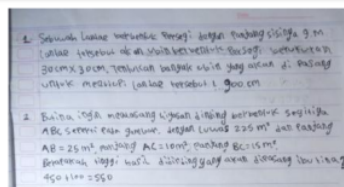 1. Sebuah lantai berbentuk Persegi dengan Panjang sisinya 9 m
lantai tersebut akan ubin berbentuk Persegi berukuran
30 cm x 30 cm, Tentukan banyak ubin yang akan di Pasang
untuk menutup lantai tersebut! 900 cm
2. ingin memasang hiasan dinding berbentuk segitiga
ABC seperti pada gambar. dengan luas 225 m² dan Panjang
AB = 25 m², panjang AC = 10 m², panjang BC = 15 m².
Berapakah tinggi hiasan dinding yang akan dipasang ibu tina?
450 + 100 = 550